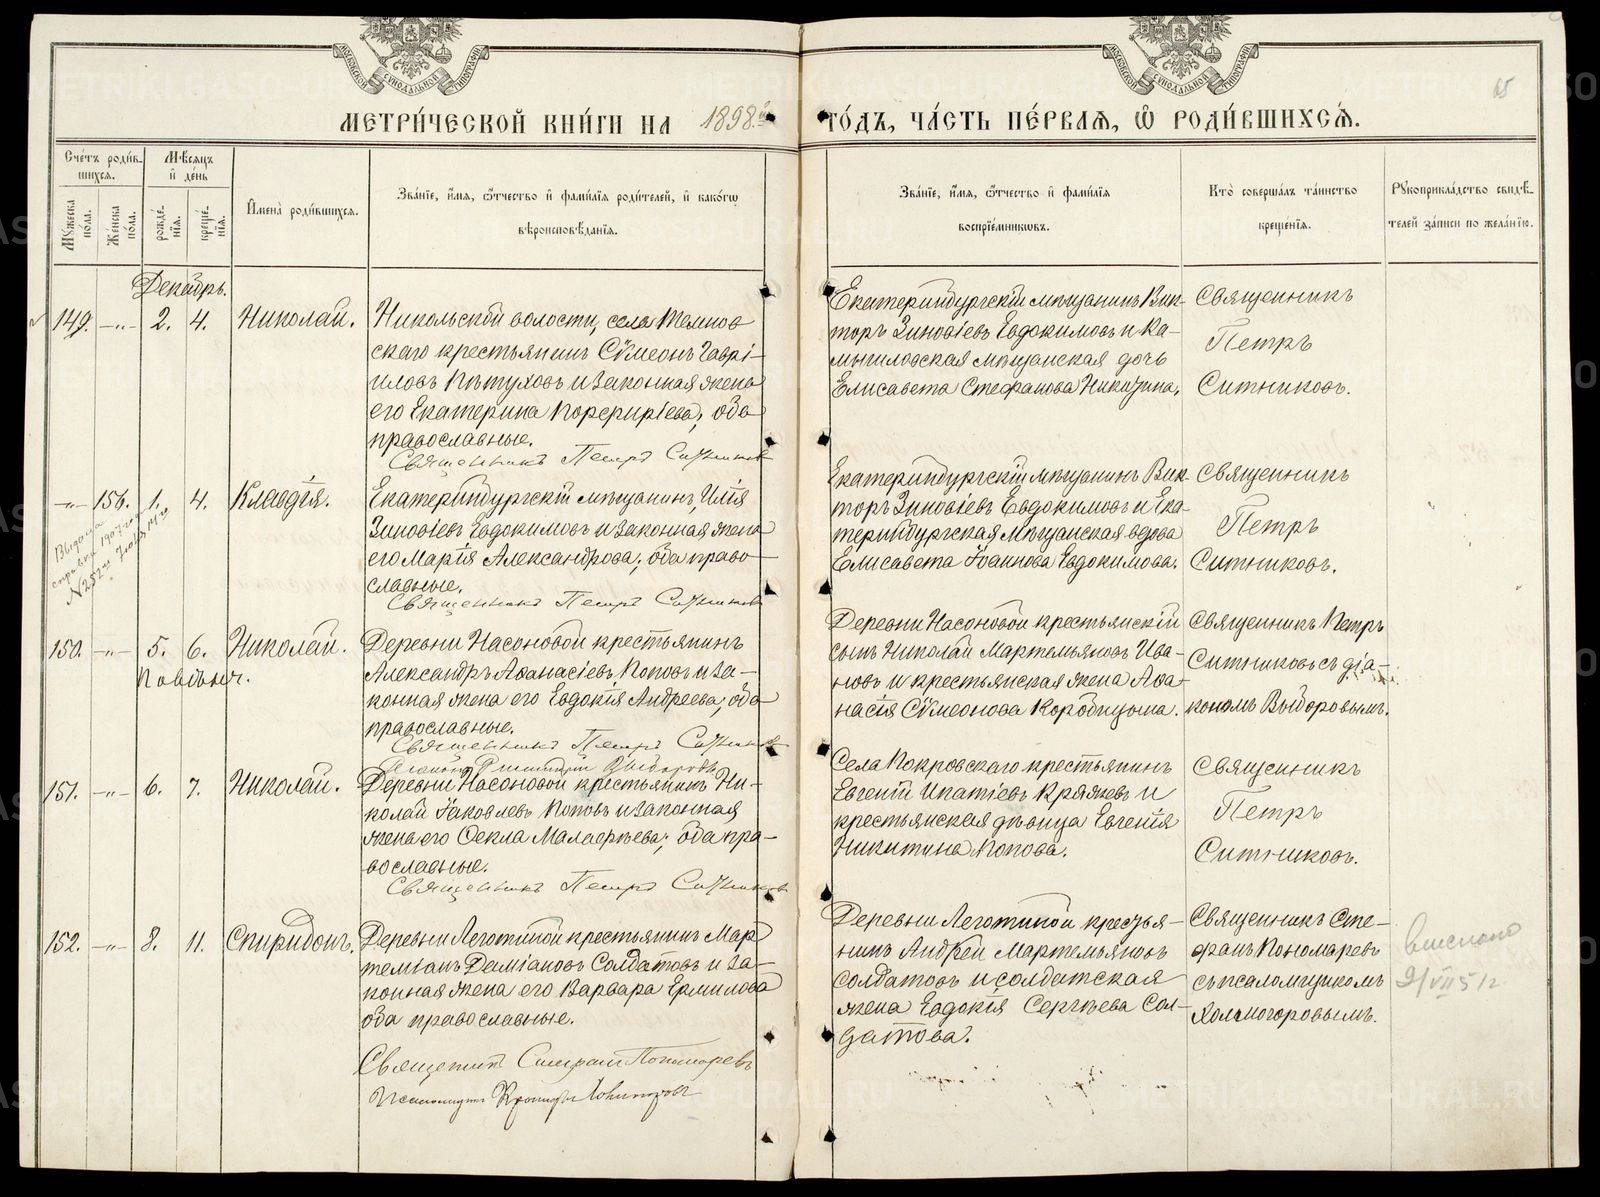 МОСКОВСКОЙ СѴНОДАЛЬНОЙ ТИПОГРАФІИ
МОСКОВСКОЙ СѴНОДАЛЬНОЙ ТИПОГРАФІИ
МЕТРИ́ЧЕСКОЙ КНИ́ГИ НА 1898.й
ГО́ДЪ, ЧА́СТЬ ПЕ́РВАѦ, Ѡ҆ РОДИ́ВШИХСѦ.
Сче́тъ роди́в-
шихсѧ.
Мѣ́сѧцъ
и҆ де́нь
Мꙋ́жеска по́ла.
Же́нска по́ла.
рожде́-нїѧ.
креще́-нїѧ.
И҆мена̀ роди́вшихсѧ.
Зва́нїе, и҆́мѧ, ѻ҆́тчество и҆ фами́лїѧ роди́телей, и҆ како́гѡ
вѣроисповѣ́данїѧ.
Зва́нїе, и҆́мѧ, ѻ҆́тчество и҆ фами́лїѧ
воспрїе́мникѡвъ.
Кто̀ соверша́лъ та́инство
креще́нїѧ.
Рꙋкоприкла́дство свидѣ́-
телей за́писи по жела́нїю.
Декабрь.
149. —„— 2. 4. Николай.
Никольской волости, села Темнов
скаго крестьянинъ Сѵмеонъ Гаврі-
иловъ Пѣтуховъ и законная жена
его Екатерина Порфирiева, оба
православные.
Священникъ Петръ Ситников
Екатеринбургскій мѣщанинъ Вик-
торъ Зиновіевъ Евдокимовъ и Ка-
мышловская мѣщанская дочь
Елисавета Стефанова Никитина.
Священникъ
Петръ
Ситниковъ.
—„— 156. 1. 4. Клавдія.
Выдана
справка 1907 г.
№ 252
Екатеринбургскій мѣщанинъ Илія
Зиновіевъ Евдокимовъ и законная жена
его Марія Александрова, оба право
славные.
Священникъ Петръ Ситников
Екатеринбургскій мѣщанинъ Вик-
торъ Зиновіевъ Евдокимовъ и Ека-
теринбургская мѣщанская вдова
Елисавета Іоаннова Евдокимова.
Священникъ
Петръ
Ситниковъ.
150. —„— 5. 6. Николай.
Деревни Насоновой крестьянинъ
Александръ Аѳанасіевъ Поповъ и за-
конная жена его Евдокія Андреева, оба
православные.
Священникъ Петръ Ситников
Деревни Насоновой крестьянскій
сынъ Николай Мартемьяновъ Ива-
новъ и крестьянская жена Аѳа-
насія Сѵмеонова Коробицына.
Священникъ Петръ
Ситниковъ съ діа-
кономъ Выборовымъ.
151. —„— 6. 7. Николай.
Деревни Насоновой крестьянинъ Ни-
колай Іаковлевъ Поповъ и законная
жена его Ѳекла Малафѣева, оба пра-
вославные.
Священникъ Петръ Ситников
Села Покровскаго крестьянинъ
Евгеній Ипатіевъ Кряжевъ и
крестьянская дѣвица Евгенія
Никитина Попова.
Священникъ
Петръ
Ситниковъ.
152. —„— 8. 11. Спиридонъ.
Деревни Леготиной крестьянинъ Мар
теміанъ Даміановъ Солдатовъ и за-
конная жена его Варвара Ермилова
оба православные.
Священникъ Стефанъ Пономаревъ
Деревни Леготиной крестья-
нинъ Андрей Мартемьяновъ
Солдатовъ и солдатская
жена Евдокія Сергѣева Сол-
датова.
Священникъ Сте-
фанъ Пономаревъ
съ псаломщикомъ
Холмогоровымъ.